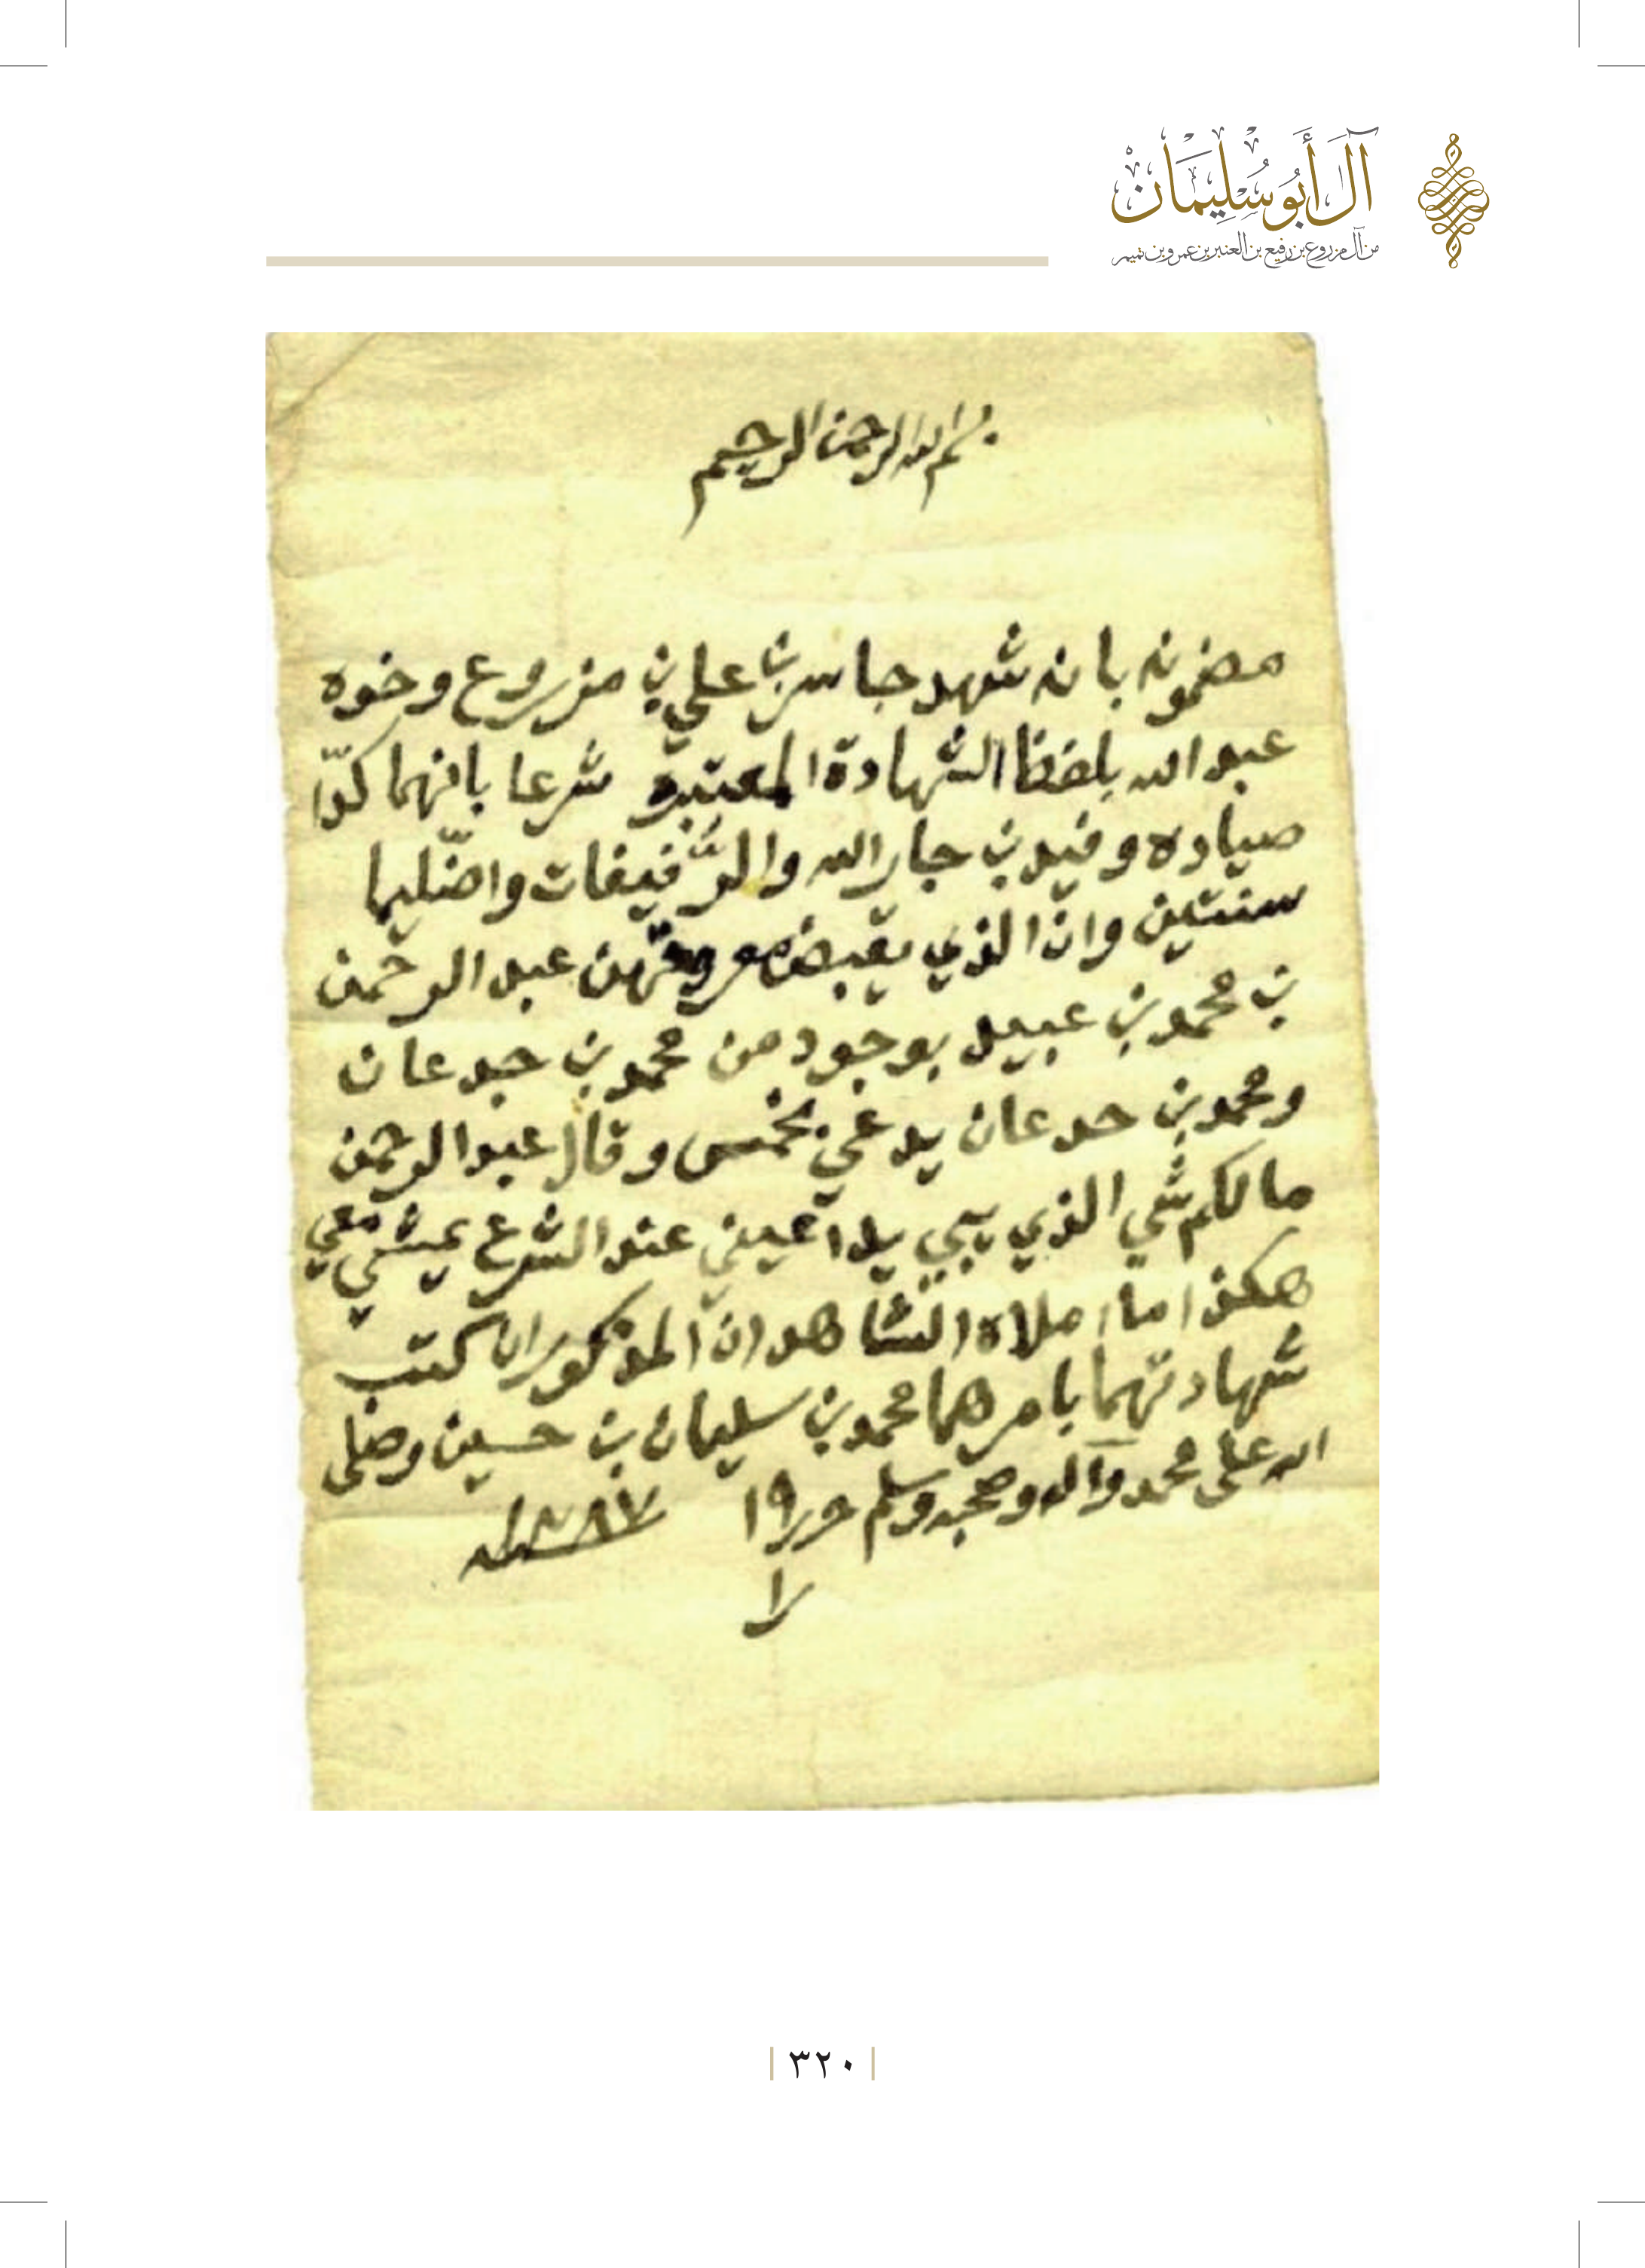 آل أبو سليمان
من آل مزروع بن رفيع بن العنبر بن عمرو بن تميم
بسم الله الرحمن الرحيم
مضمونه بانه شهد جاسر بن علي بن مزروع وخوه
عبد الله بلفظ الشهادة المعتبره شرعا بانهما كدّا
صياده وفيد بن جار الله والرفيفات واضليما
سنتين وان الذي يقبض معروفتهن عبد الرحمن
بن محمد بن عبيد بوجود من محمد بن جدعان
ومحمد بن جدعان يدعي بخمس وقال عبد الرحمن
ما لكم شي الذي يبي يداعيني عند الشرع يمشي معي
هكذا ما املاه الشاهدان المذكوران كتب
شهادتهما بامرهما محمد بن سليمان بن حسين وصلى
الله على محمد وآله وصحبه وسلم حرر ١٩
را
٣٢٠